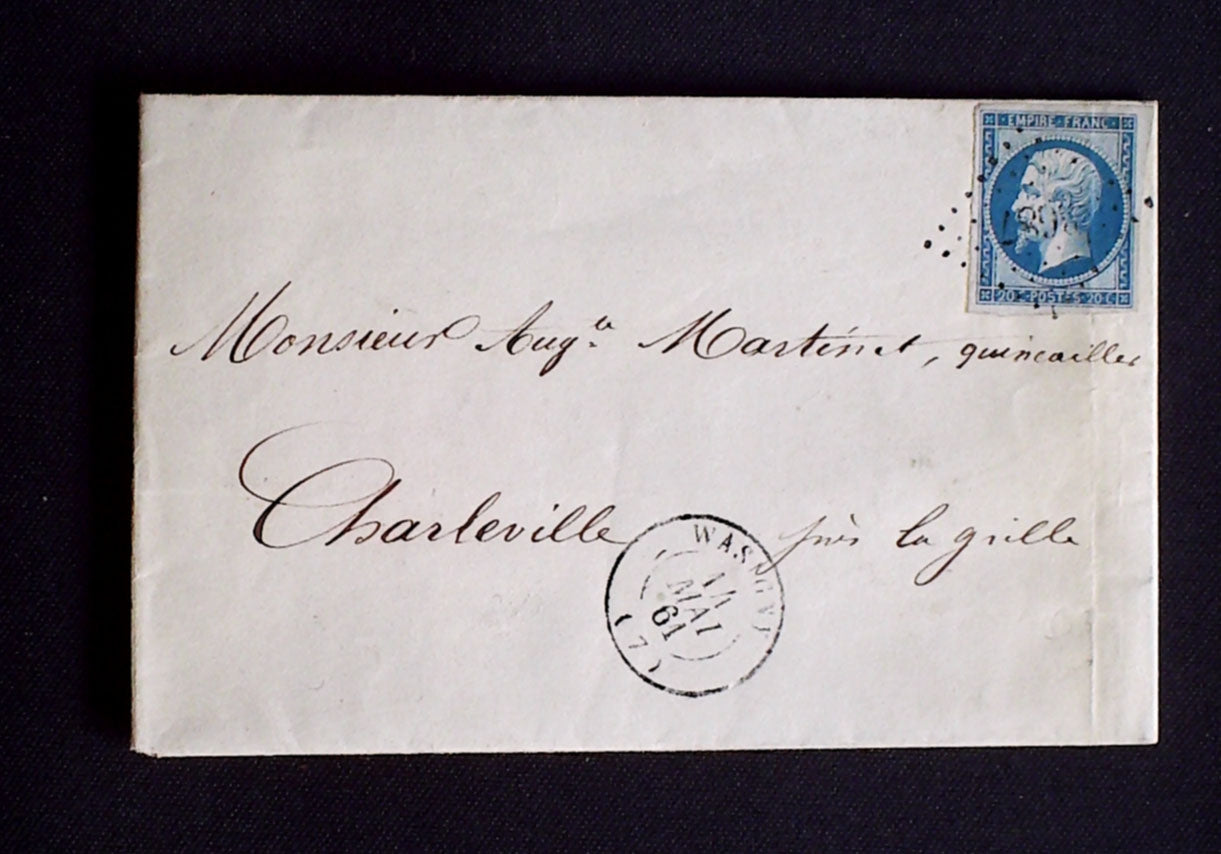 EMPIRE FRANC
20 C POSTES 20 C
Monsieur Aug.te Martinet, quincailler
Charleville près la grille
WASIGNY
14
MAI
61
(7)